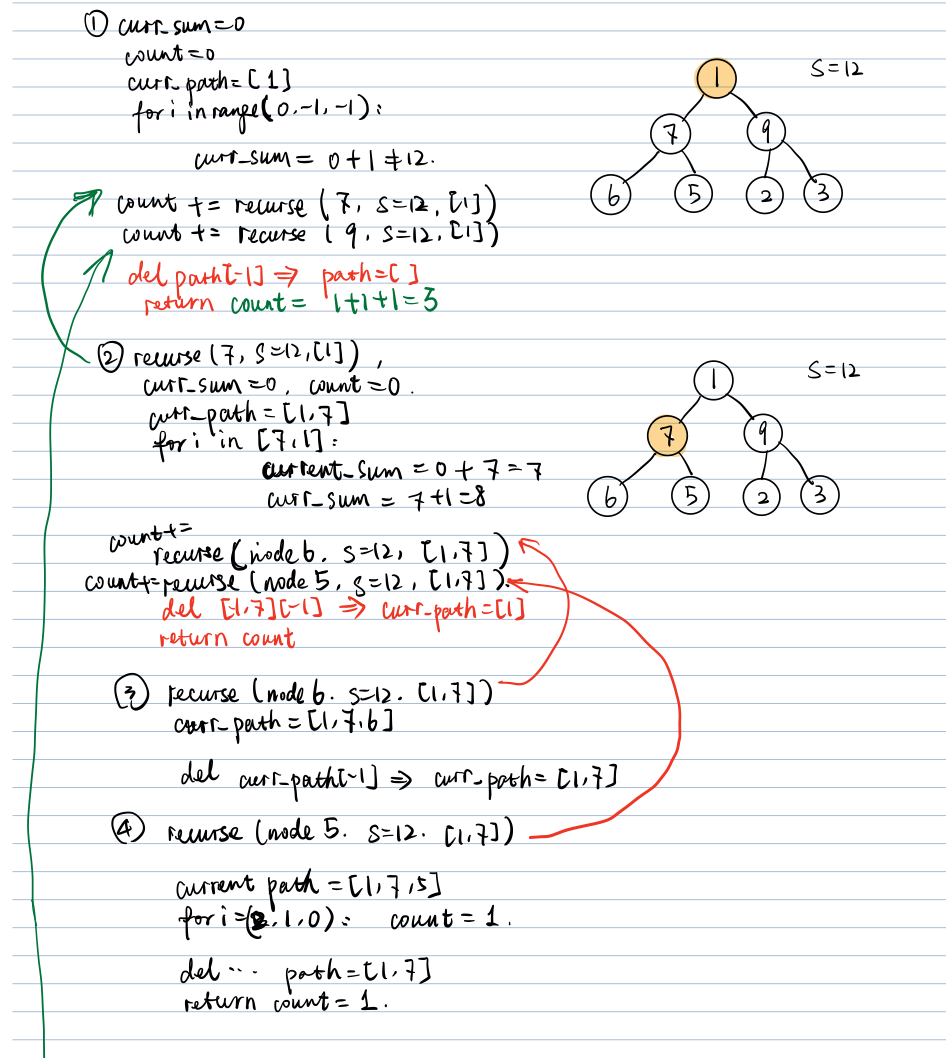 ① curr_sum=0
count=0
curr_path=[1]
for i in range(0,-1,-1):
curr_sum = 0+1≠12.
count += recurse (7, S=12, [1])
count += recurse (9, S=12, [1])
del path[-1] ⇒ path=[ ]
return count = 1+1+1=5
S=12
1
7 9
6 5 2 3
② recurse (7, S=12, [1]),
curr_sum=0, count=0.
curr_path=[1,7]
for i in [7,1]:
current_sum = 0+7=7
curr_sum = 7+1=8
count+=
recurse (node 6. S=12, [1,7])
count+=recurse (node 5, S=12, [1,7]).
del [1,7][-1] ⇒ curr_path=[1]
return count
S=12
1
7 9
6 5 2 3
③ recurse (node 6. S=12. [1,7])
curr_path=[1,7,6]
del curr_path[-1] ⇒ curr_path=[1,7]
④ recurse (node 5. S=12. [1,7])
current path =[1,7,5]
for i=(2,1,0): count = 1.
del ... path=[1,7]
return count = 1.